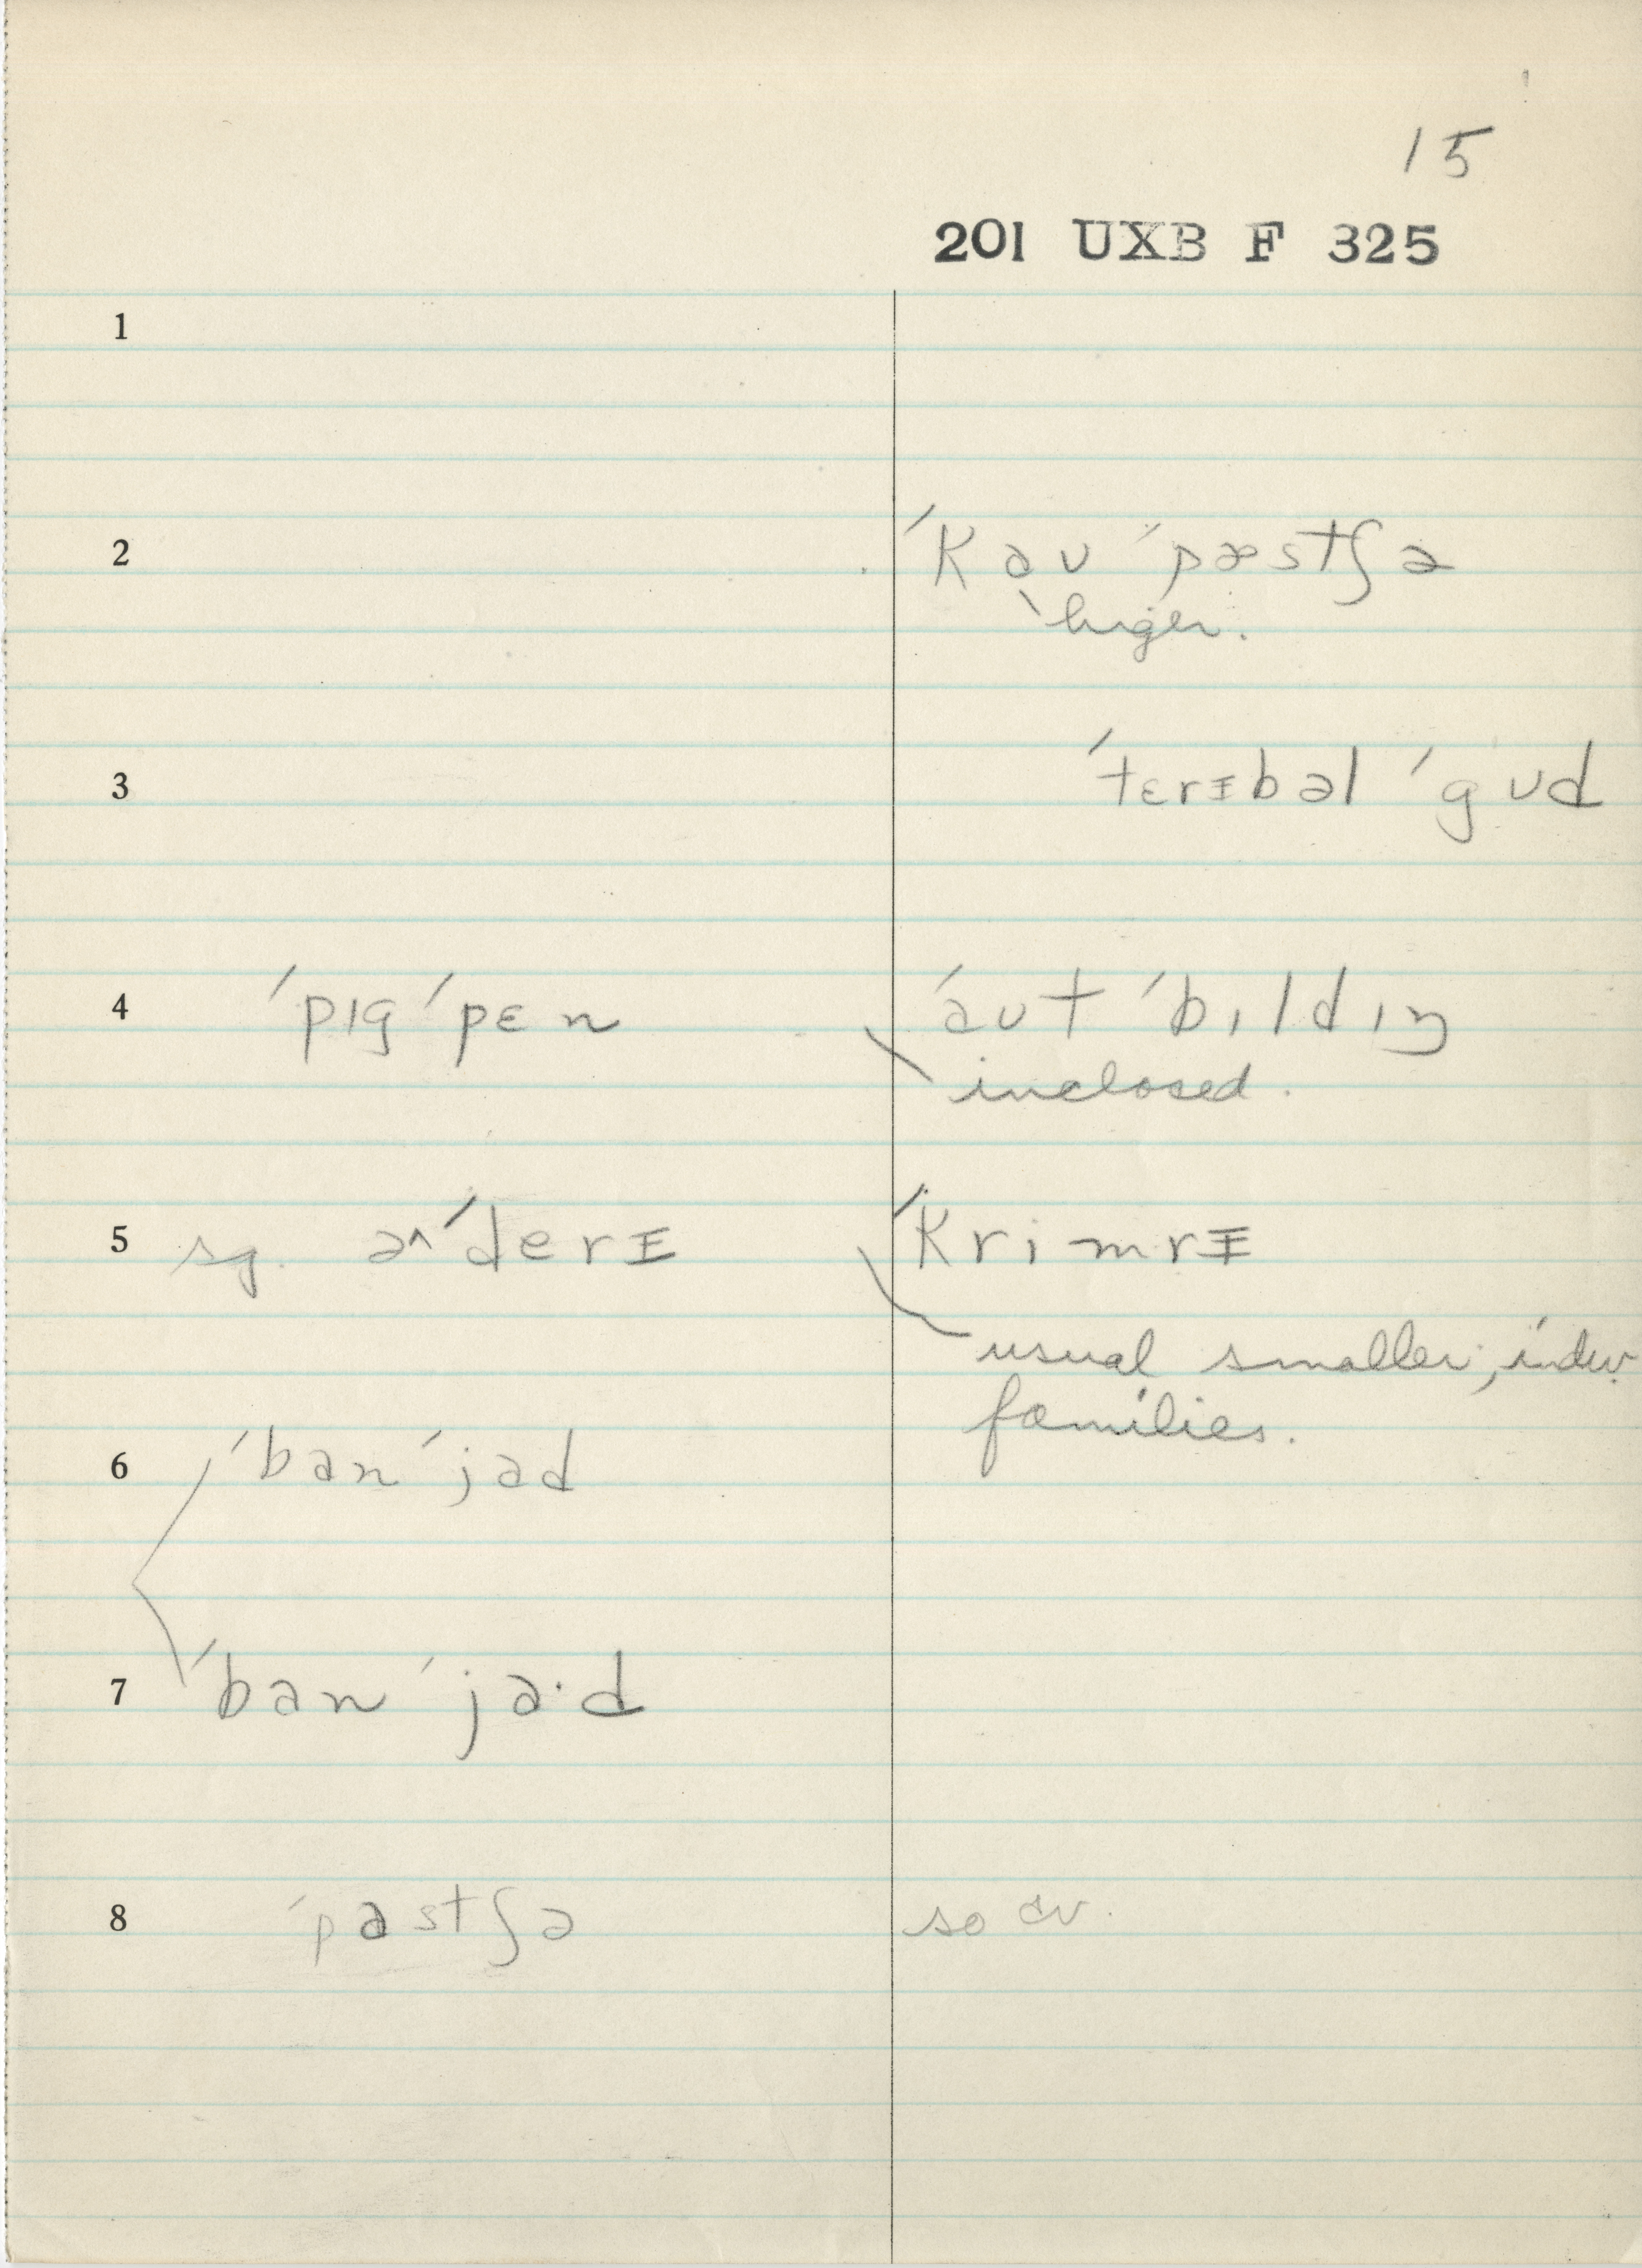 15
201 UXB F 325
1
2 ˈkaʊ ˈpæstʃə
huger.
3 ˈterᵻbəl ˈgʊd
4 ˈpɪgˈpɛn ˈaʊt ˈbɪldɪŋ
inclosed.
5 sg. a^ˈderᵻ ˈkrimrᵻ
usual smaller, indiv.
families.
6 ˈban ˈjad
7 ˈban ˈja·d
8 ˈpastʃə so cv.